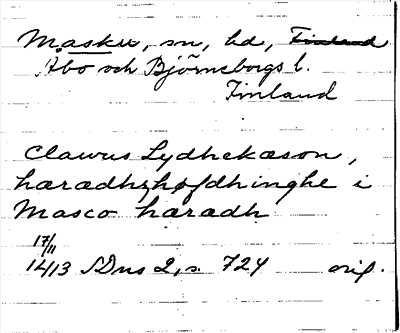 Masku, sn, hd, Finland
Åbo och Björneborgs l.
Finland
Clawus Lydhekason,
hæradhzhøfdhinghe i
Masco hæradh
17/11
1413 SDns 2, s. 724 orig.